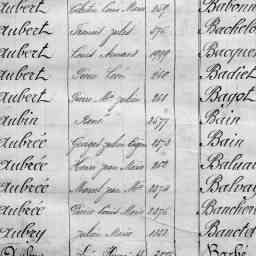 Aubert Louis Marie 259 Babonn
Aubert Francois Jules 576 Bachelo
Aubert Louis Armand 1999 Bacques
Aubert Pierre Léon 260 Badiet
Aubert Pierre Mie Julien 261 Bagot
Aubin René 2577 Bain
Aubrée Georges Julien Eugne 1273 Bain
Aubrée Henri Jean Marie 262 Baluai
Aubrée Marcel Jean Mie 1274 Balvay
Aubrée Pierre Louis Marie 2276 Bancher
Aubry Julien Marie 1122 Banctel